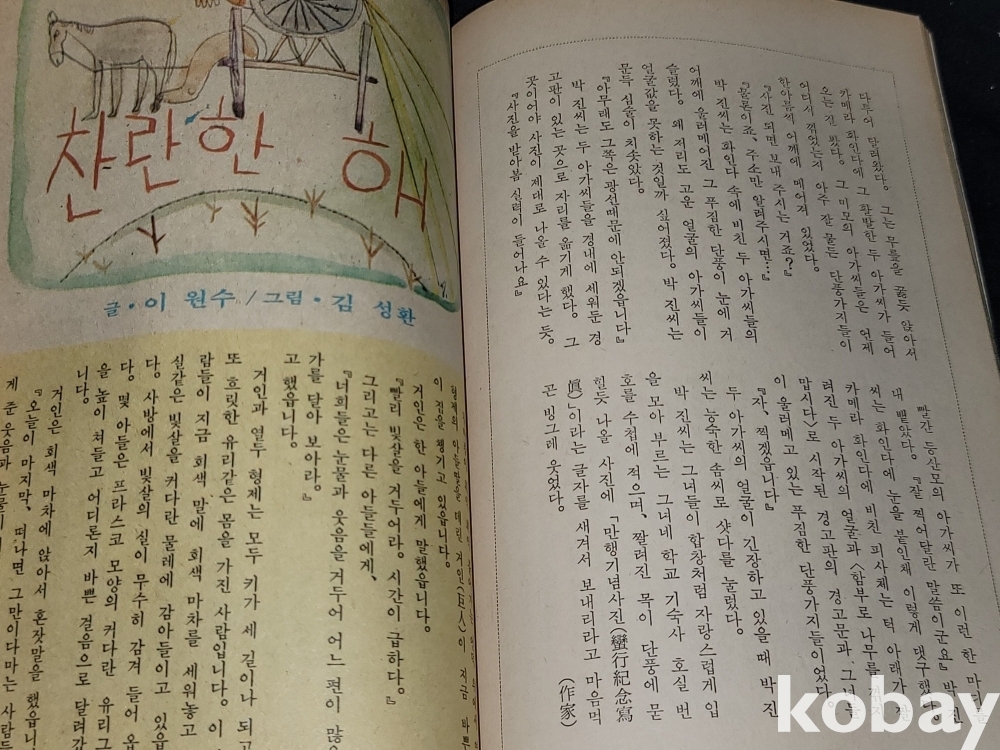 다투어 달려왔다. 그는 무릎을 꿇듯 앉아서
카메라 화인다에 그 활발한 두 아가씨가 들어
오는 걸 봤다. 그 미모의 아가씨들은 언제
어디서 꺾었는지 아주 잘 물든 단풍가지들이
한아름씩 어깨에 메어져 있었다.
『사진 되면 보내 주시는 거죠?』
『물론이죠 주소만 알려주시면…』
박 진씨는 화인다 속에 비친 두 아가씨들의
어깨에 울러메어진 그 푸짐한 단풍이 눈에 거
슬렸다. 왜 저리도 고운 얼굴의 아가씨들이
얼굴값을 못하는 것일까 싶어졌다. 박 진씨는
문득 심술이 치솟았다.
『아무래도 그쪽은 광선때문에 안되겠읍니다』
박 진씨는 두 아가씨들을 경내에 세워둔 경
고판이 있는 곳으로 자리를 옮기게 했다. 그
곳이어야 사진이 제대로 나올 수 있다는 듯.
『사진을 받아봄 실력이 들어나요』
빨간 등산모의 아가씨가 또 이런 한 마디를
내 뱉었다. 『잘 찍어달란 말씀이군요』 박 진
씨는 화인다에 눈을 붙인채 이렇게 댓구했다.
카메라 화인다에 비친 피사체는 턱 아래가 잘
려진 두 아가씨의 얼굴과 〈함부로 나무를 꺾지
맙시다〉로 시작된 경고판의 경고문과 그녀들
이 울러메고 있는 푸짐한 단풍가지들이었다.
『자, 찍겠읍니다』
두 아가씨의 얼굴이 긴장하고 있을 때 박 진
씨는 능숙한 솜씨로 샷다를 눌렀다.
박 진씨는 그녀들이 합창처럼 자랑스럽게 입
을 모아 부르는 그녀네 학교 기숙사 호실 번
호를 수첩에 적으며, 짤려진 목이 단풍에 묻
힐듯 나올 사진에 「만행기념사진(蠻行紀念寫
眞)」이라는 글자를 새겨서 보내리라고 마음먹
곤 빙그레 웃었다.
(作家)
찬란한 해
글·이 원수/그림·김 성환
형제의 아들을 데린 거인(巨人)이 지금
이 짐을 챙기고 있읍니다.
거인은 한 아들에게 말했읍니다.
『빨리 빛살을 거두어라. 시간이 급하다.』
그리고는 다른 아들들에게,
『너희들은 눈물과 웃음을 거두어 어느 편이 많
가를 달아 보아라.』
고 했읍니다.
거인과 열두 형제는 모두 키가 세 길이나 되고
또 흐릿한 유리같은 몸을 가진 사람입니다. 이
람들이 지금 회색 말에 회색 마차를 세워놓고
실같은 빛살을 커다란 물레에 감아들이고 있
다. 사방에서 빛살의 실이 무수히 감겨 들어
다. 몇 아들은 프라스코 모양의 커다란 유리그
을 높이 쳐들고 어디론지 바쁜 걸음으로 달려갔
니다.
거인은 회색 마차에 앉아서 혼잣말을 했읍니
『오늘이 마지막, 떠나면 그만이다마는 사람들
게 준 웃음과 눈물이
kobay